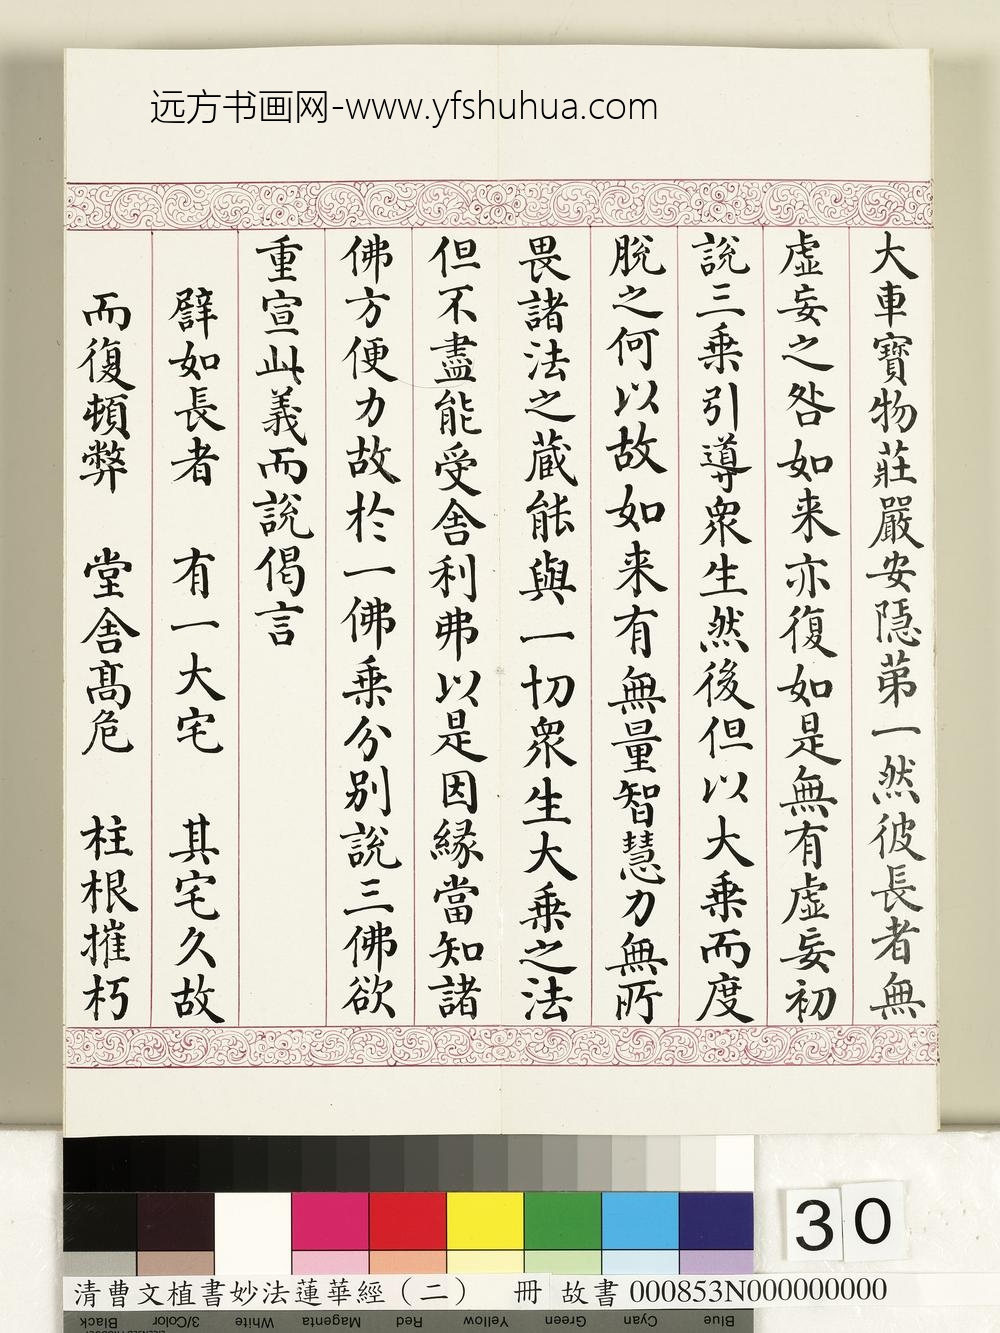 远方书画网-www.yfshuhua.com
大車寳物莊嚴安隱苐一然彼長者無
虛妄之咎如来亦復如是無有虛妄初
說三乗引導衆生然後但以大乗而度
脫之何以故如来有無量智慧力無所
畏諸法之蔵能與一切衆生大乗之法
但不盡能受舎利弗以是因緣當知諸
佛方便力故於一佛乗分别說三佛欲
重宣此義而說偈言
譬如長者 有一大宅 其宅久故
而復頓弊 堂舎髙危 柱根摧朽
30
清曹文植書妙法蓮華經(二) 冊 故書 000853N000000000
Black 3/Color White Magenta Red Yellow Green Cyan Blue